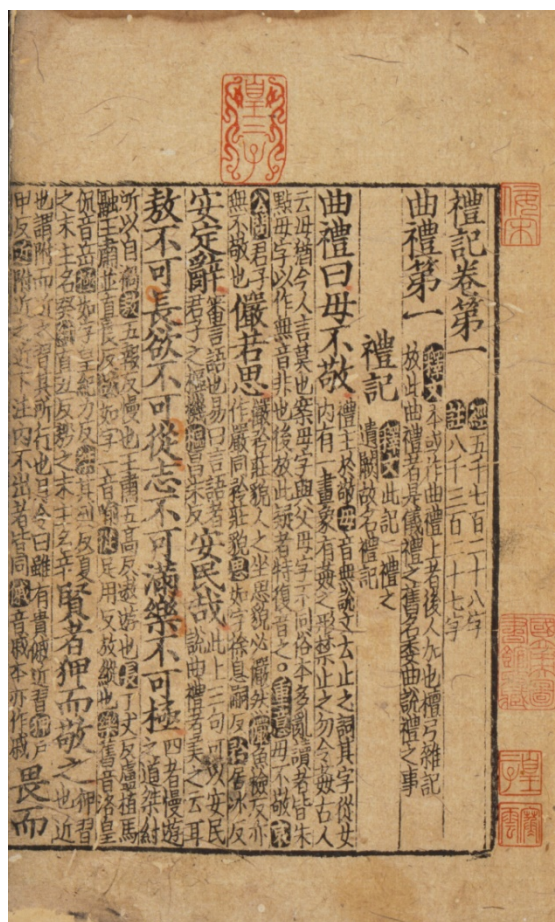 禮記卷第一
經五千七百二十八字
註八千三百一十七字
曲禮第一
釋文本或作曲禮上者後人加也檀弓雜記
放此曲禮者是儀禮之舊名委曲說禮之事
禮記
釋文此記二禮之
遺闕故名禮記
曲禮曰毋不敬
禮主於敬毋音無說文云止之詞其字從女
內有一畫象有姦之形禁止之勿令姦古人
云毋猶今人言莫也案毋字與父母字不同俗本多亂讀者皆朱
點毋字以作無音非也後放此疑者特復音之。重意毋不敬哀
公問君子
無不敬也
儼若思
儼矜莊貌人之坐思貌必儼然儼魚檢反亦
作嚴同矜莊貌思如字徐息嗣反矜居冰反
安定辭
審言語也易曰言語者
君子之樞機樞昌朱反
安民哉
此上三句可以安民
說曲禮者美之云耳
敖不可長欲不可從志不可滿樂不可極
四者慢遊
之道桀紂
所以自禍敖五報反慢也王肅五高反敖遊也長丁丈反盧植馬
融王肅並直良反欲如字一音喻從足用反放縱也樂舊音洛皇
侃音岳極如字皇紀力反桀其列反夏
之末主名紂直丑反殷之末主名辛
賢者狎而敬之
狎習
也近
也謂附而近之習其所行也月令曰雖有貴戚近習狎戶
甲反近附近之近下注內不出者皆同戚音戚本亦作
畏而
皇三子